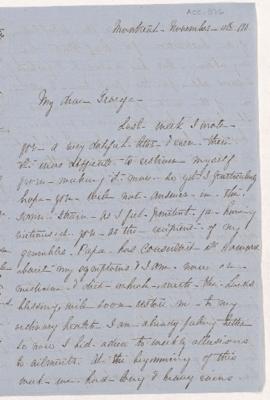 Montreal November 11th
My dear George
Last week I wrote
you a very doleful letter & even then
it was difficult to restrain myself
from making it more so yet I particularly
hope you will not answer in the
same strain as I feel penitent for having
victimised you as the recipient of my
grumbles. Papa has consulted Dr
about my symptoms & I am now on
medicine & diet which with the Lord's
blessing will soon restore me to my
ordinary health I am already feeling better
so now I bid adieu to weekly allusions
to ailments. At the beginning of this
week we had very heavy rains